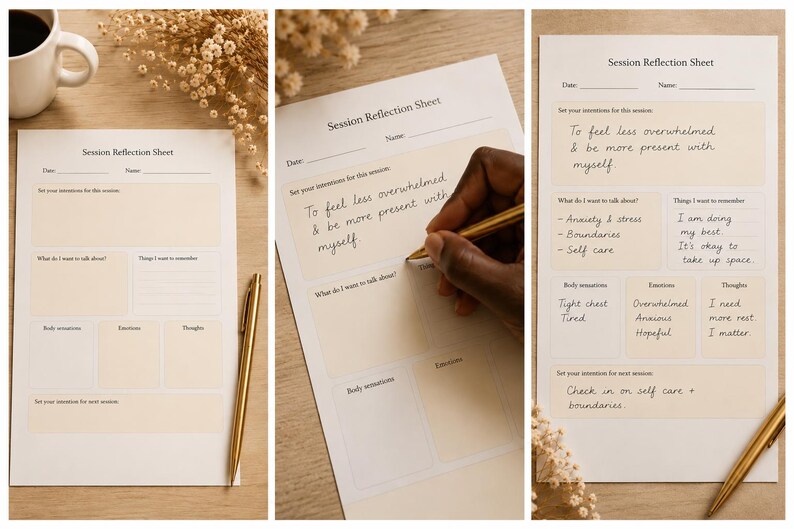 Session Reflection Sheet
Date: Name:
Set your intentions for this session:
What do I want to talk about? Things I want to remember
Body sensations Emotions Thoughts
Set your intention for next session:
Session Reflection Sheet
Date: Name:
Set your intentions for this session:
To feel less overwhelmed
& be more present with
myself.
What do I want to talk about? Thing
Body sensations Emotions
Session Reflection Sheet
Date: Name:
Set your intentions for this session:
To feel less overwhelmed
& be more present with
myself.
What do I want to talk about?
- Anxiety & stress
- Boundaries
- Self care
Things I want to remember
I am doing
my best.
It's okay to
take up space.
Body sensations
Tight chest
Tired
Emotions
Overwhelmed
Anxious
Hopeful
Thoughts
I need
more rest.
I matter.
Set your intention for next session:
Check in on self care +
boundaries.